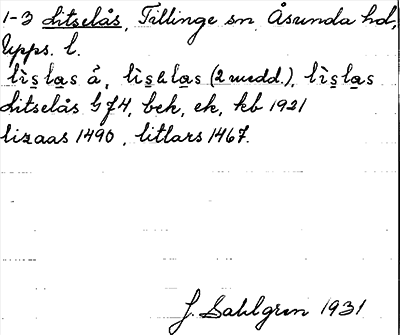 1-3 Litselås, Tillinge sn Åsunda hd,
Upps. l.
lìslas å, lìsəlas (2 medd.), lìslas
Litselås Gf4, bek, ek, kb 1921
lizaas 1490, litlars 1467.
J. Sahlgren 1931